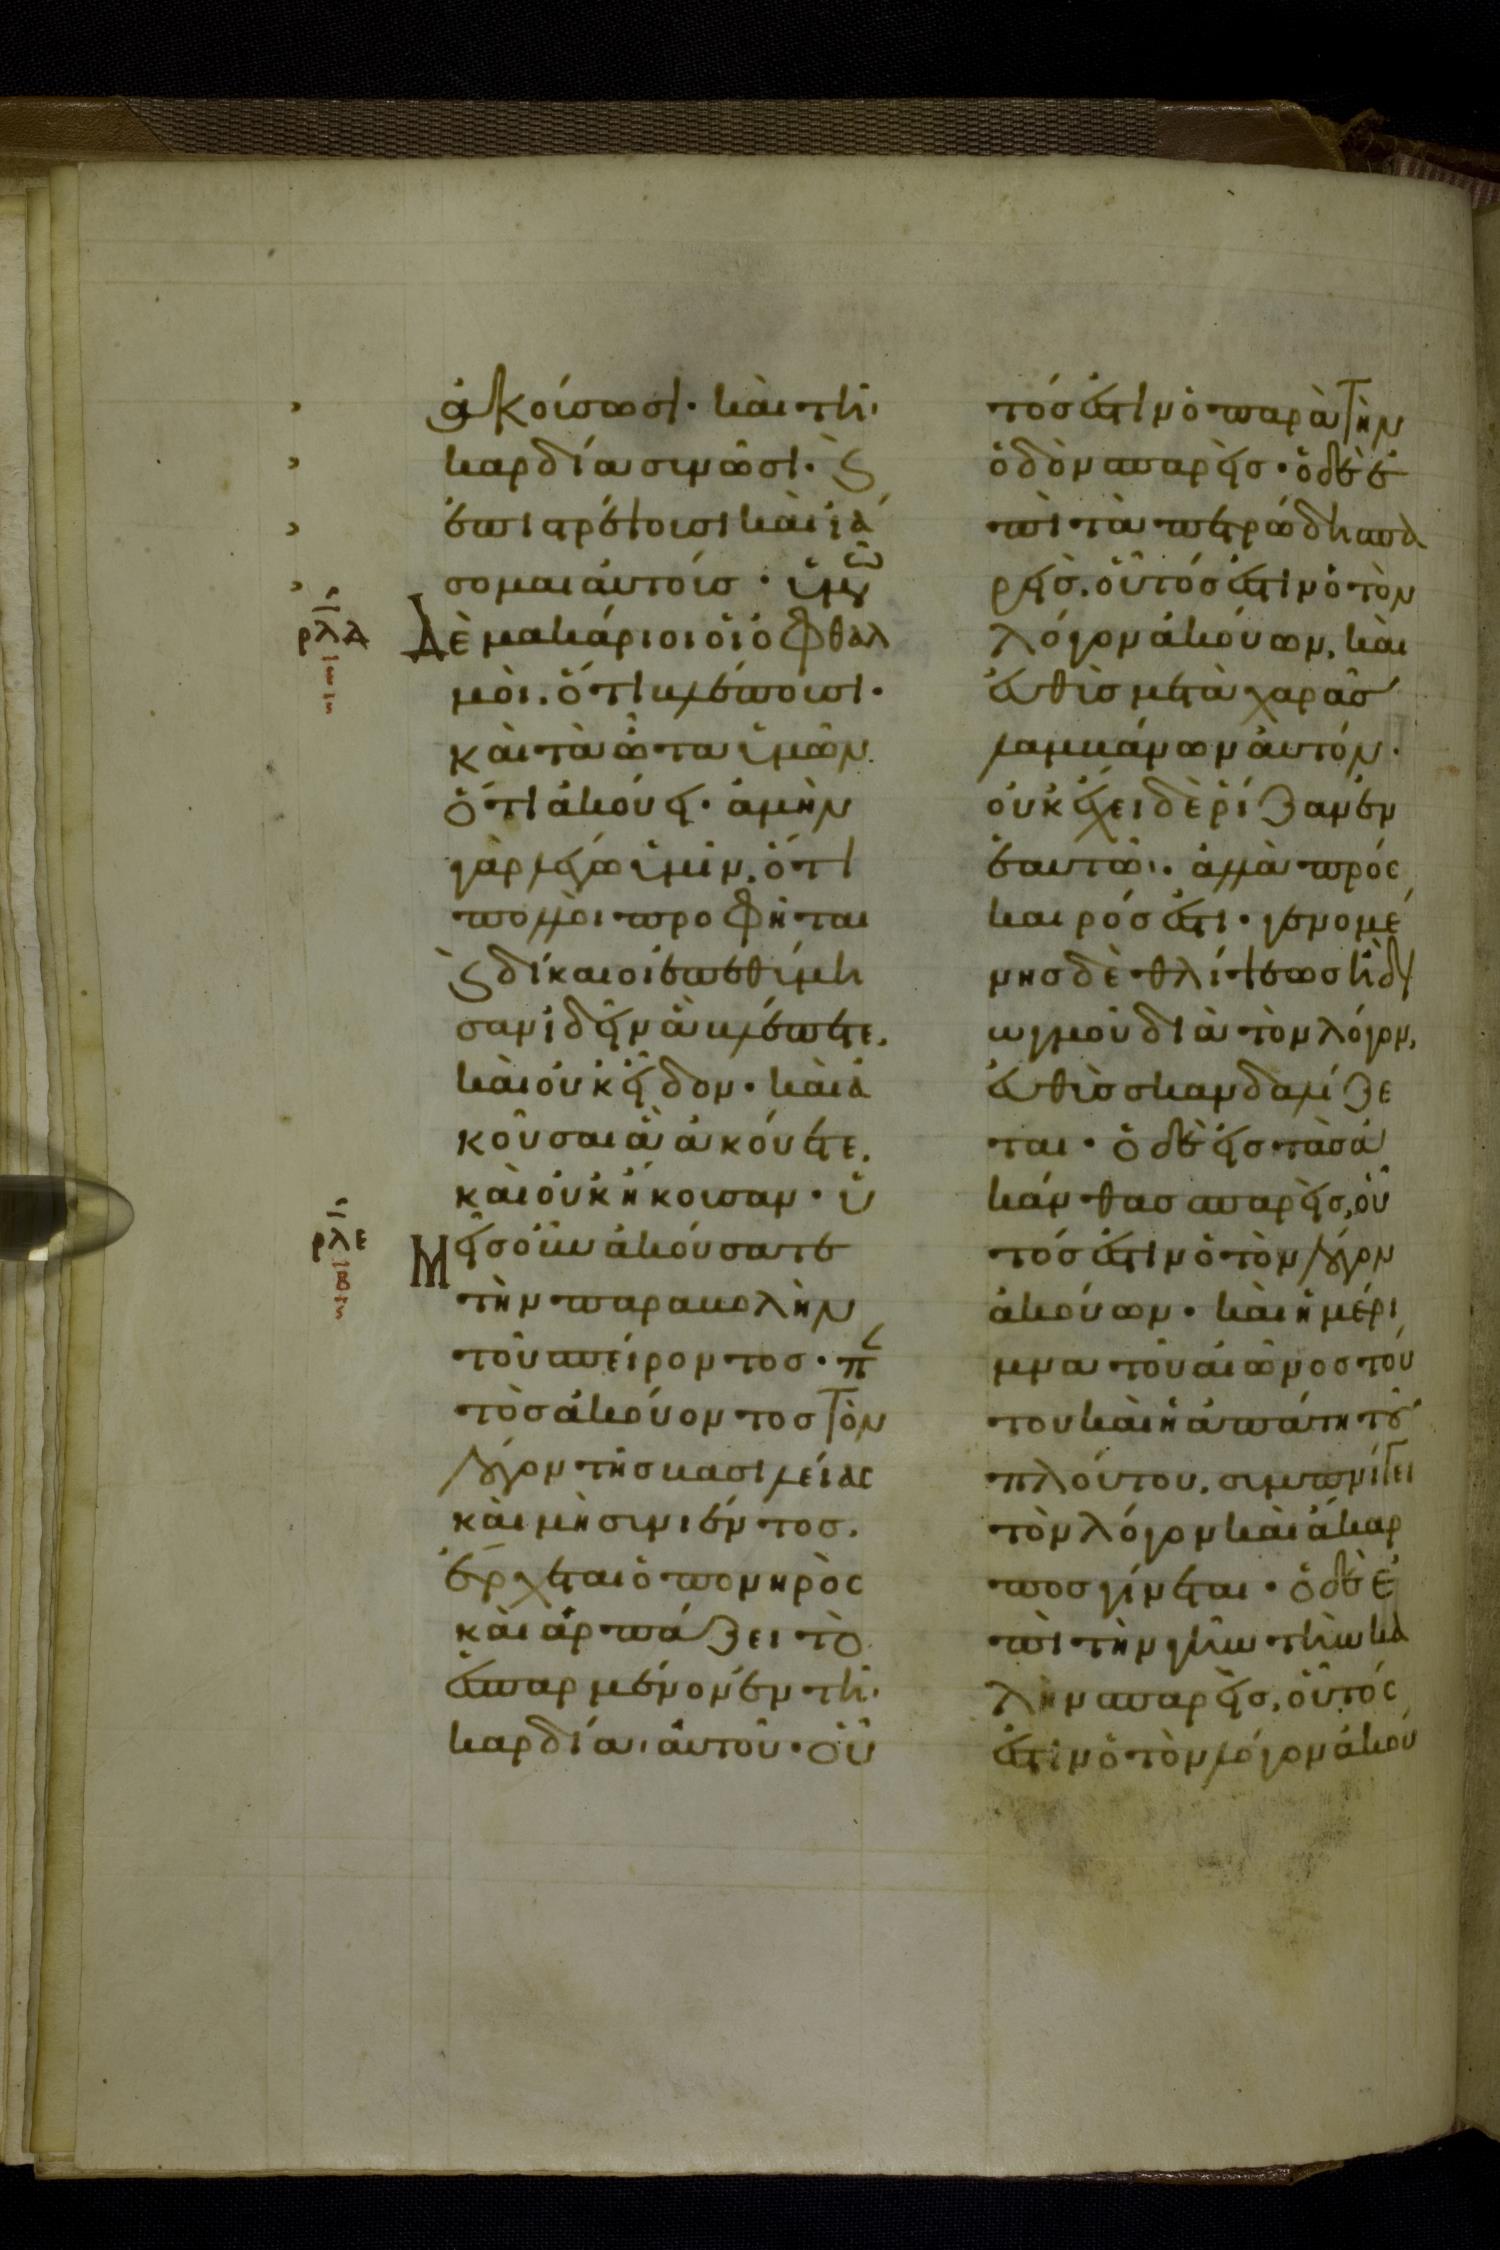 ἀκούσωσι· καὶ τῆι
καρδίαι συνῶσι· ϗ
ἐπιστρέψουσι καὶ ἰά
σομαι αὐτούς · ὑμῶ
ρλδ
Δὲ μακάριοι οἱ ὀφθαλ
μοὶ. ὅτι βλέπουσι·
καὶ τὰ ὦτα ὑμῶν.
ὅτι ἀκούει· ἀμὴν
γὰρ λέγω ὑμῖν. ὅτι
πολλοὶ προφῆται
ϗ δίκαιοι ἐπεθύμη
σαν ἰδεῖν ἃ βλέπετε.
καὶ οὐκ εἶδον· καὶ ἀ
κοῦσαι ἃ ἀκούετε.
καὶ οὐκ ἤκουσαν· ὑ
ρλε
Μεῖς οὖν ἀκούσατε
τὴν παραβολὴν
τοῦ σπείροντος· π
τὸς ἀκούοντος τὸν
λόγον τῆς βασιλείας
καὶ μὴ συνιέντος.
ἔρχεται ὁ πονηρὸς
καὶ ἁρπάζει τὸ
ἐσπαρμένον ἐν τῆι
καρδίαι αὐτοῦ· οὗ
τός ἐστιν ὁ παρὰ τὴν
ὁδὸν σπαρείς· ὁ δὲ ἐ
πὶ τὰ πετρώδη σπα
ρεὶς. οὗτός ἐστιν ὁ τὸν
λόγον ἀκούων. καὶ
εὐθὺς μετὰ χαρᾶς
λαμβάνων αὐτόν.
οὐκ ἔχει δὲ ῥίζαν ἐν
ἑαυτῶι. ἀλλὰ πρός
καιρός ἐστι· γενομέ
νης δὲ θλίψεως ἢ δι
ωγμοῦ διὰ τὸν λόγον,
εὐθὺς σκανδαλίζε
ται· ὁ δὲ εἰς τὰς ἀ
κάνθας σπαρεὶς, οὗ
τός ἐστιν ὁ τὸν λόγον
ἀκούων· καὶ ἡ μέρι
μνα τοῦ αἰῶνος τού
του καὶ ἡ ἀπάτη τοῦ
πλούτου. συμπνίγει
τὸν λόγον καὶ ἄκαρ
πος γίνεται· ὁ δὲ ἐ
πὶ τὴν γῆν τὴν κα
λὴν σπαρείς, οὗτός
ἐστιν ὁ τὸν λόγον ἀκού